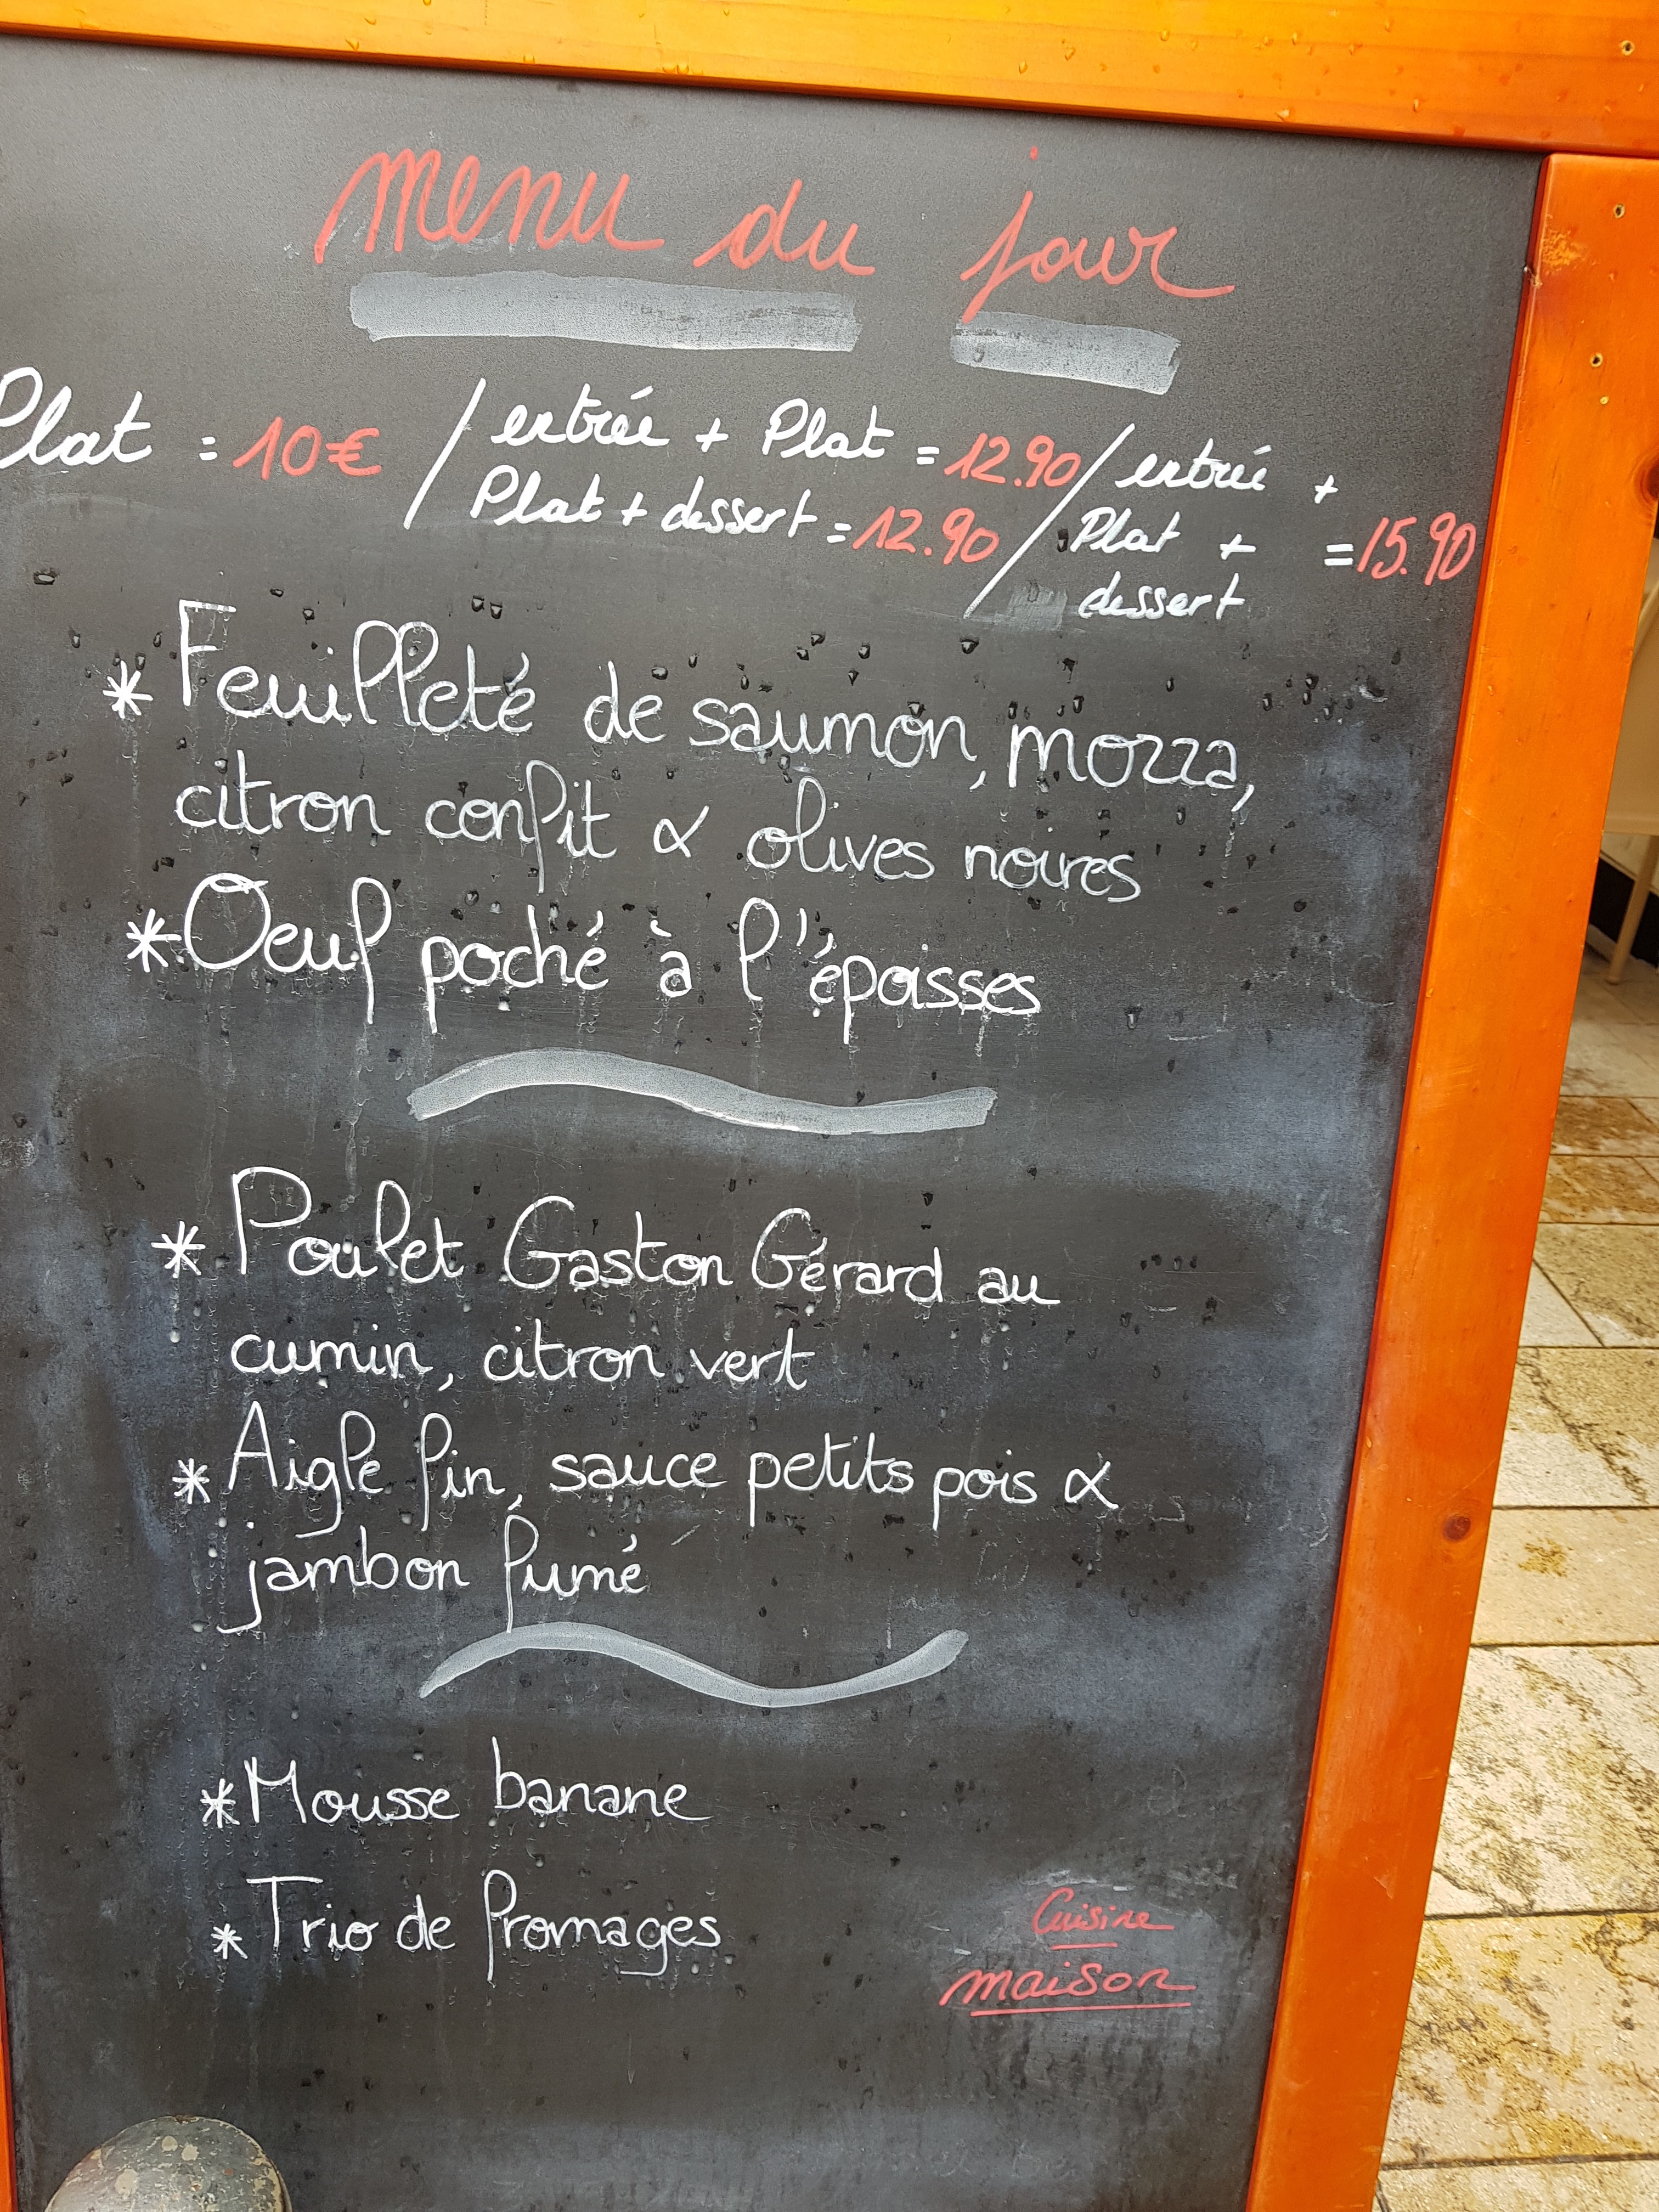 menu du jour
Plat = 10€ / entrée + Plat = 12.90 / entrée +
Plat + dessert = 12.90 / Plat + = 15.90
dessert
* Feuilleté de saumon, mozza,
citron confit & olives noires
* Oeuf poché à l'époisses
* Poulet Gaston Gérard au
cumin, citron vert
* Aigle fin, sauce petits pois &
jambon fumé
* Mousse banane
* Trio de fromages
Cuisine
maison